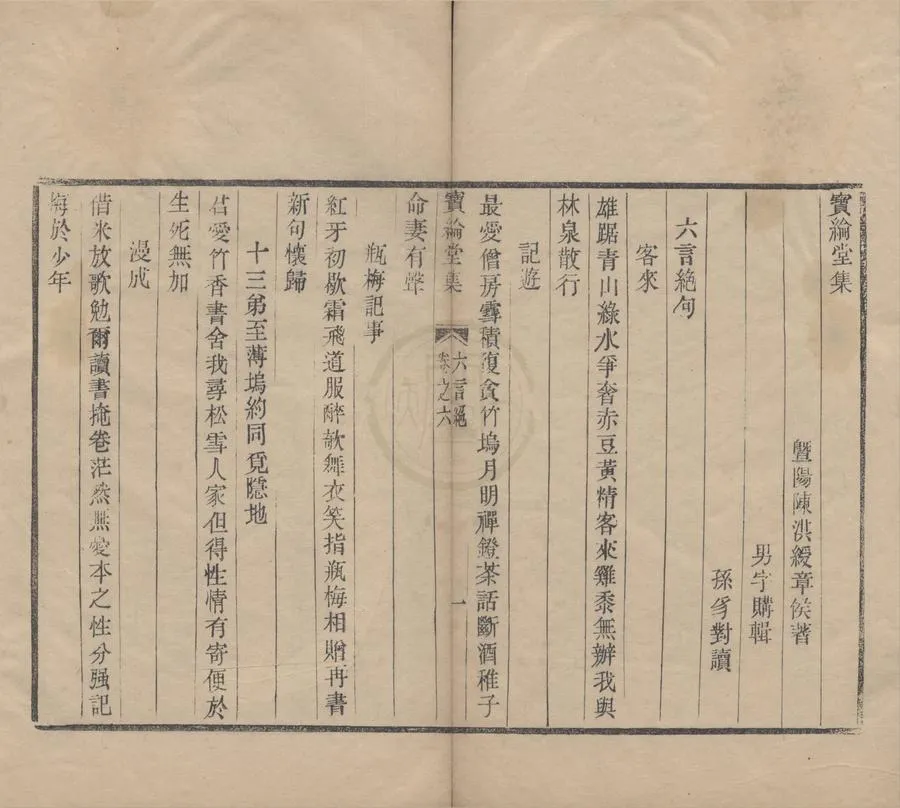 寶綸堂集
暨陽陳洪綬章侯著
男字購輯
孫豸對讀
六言絕句
客來
雄踞青山綠水爭奢赤豆黃精客來雞黍無辦我與
林泉散行
記遊
最愛僧房雪積復貪竹塢月明禪鐙茶話斷酒稚子
寶綸堂集
六言絕
卷之六
一
命妻有聲
瓶梅記事
紅牙初歇霜飛道服醉欹舞衣笑指瓶梅相贈再書
新句懷歸
十三弟至薄塢約同覓隱地
君愛竹香書舍我尋松雪人家但得性情有寄便於
生死無加
漫成
借米放歌勉爾讀書掩卷茫然無愛本之性分强記
悔於少年